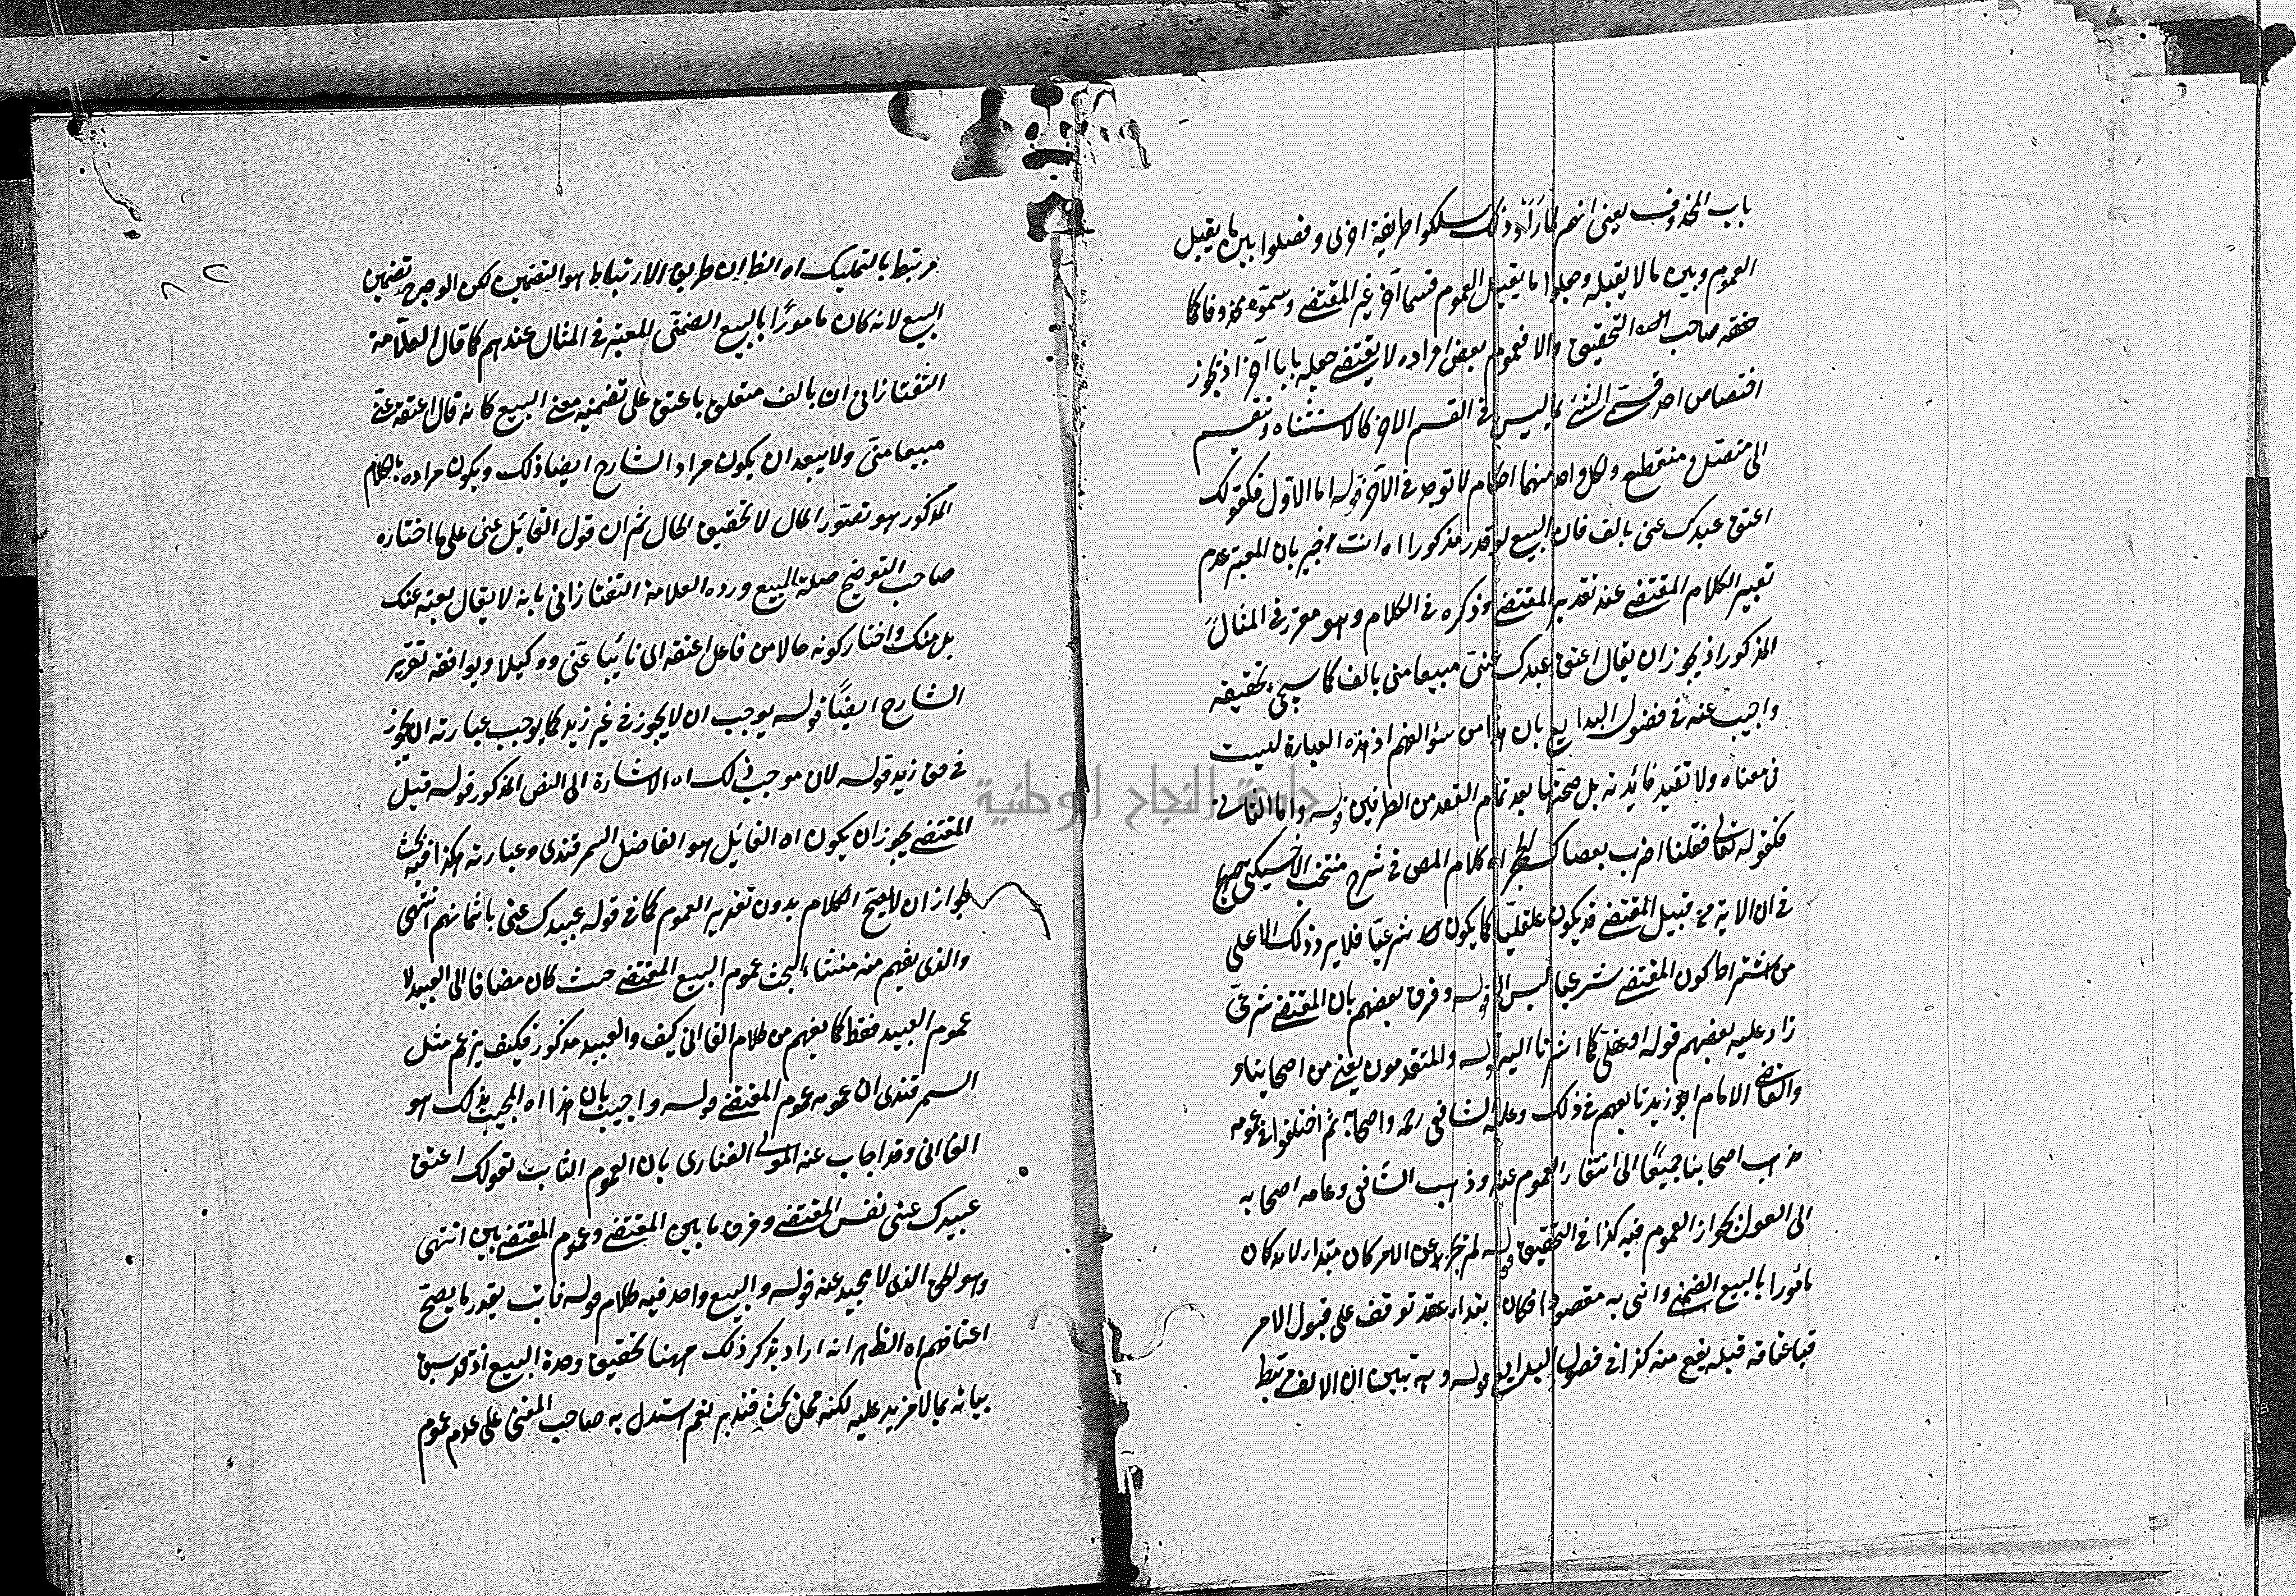 باب المحذوف يعنى انهم لما رأوا ذلك سلكوا طريقة اخرى وفصلوا بين ما يقبل
العموم وبين ما لا يقبله وجعلوا ما يقبل العموم قسما آخر غير المقتضى وسموه محذوفا كما
حققه صاحب التحقيق والا فعموم بعض افراده لا يقتضى جعله بابا آخر اذ يجوز
اختصاص احد قسمى الشئ بما ليس فى القسم الاخر كالاستثناء ينقسم
الى متصل ومنقطع ولكل واحد منهما احكام لا توجد فى الآخر قوله اما الاول فكقولك
اعتق عبدك عنى بالف فان البيع لو قدر مذكورا اه انت خبير بان المعتبر عدم
تغيير الكلام المقتضى عند تقدير المقتضى وذكره فى الكلام وهو مقرر فى المثال
المذكور اذ يجوز ان يقال اعتق عبدك عنى مبيعا منى بالف كما سيجئ تحقيقه
واجيب عنه فى فصول البدايع بان هذا من سؤ الفهم اذ هذه العبارة ليست
فى معناه ولا تفيد فائدته بل صحتها بعد تمام العقد من الطرفين قوله واما الثانى
فكقوله تعالى فقلنا اضرب بعصاك الحجر اه كلام المص فى شرح منتخب الاخسيكتى صريح
فى ان الاية من قبيل المقتضى قد يكون عقليا كما يكون شرعيا فلا يرد ذلك الا على
من اشتراط كون المقتضى شرعيا ليس الا قوله وفرق بعضهم بان المقتضى شرعى
زاد عليه بعضهم قوله او عقلى كما اشرنا اليه قوله والمتقدمون يعنى من اصحابنا و
والقاضى الامام ابو زيد تابعهم فى ذلك وعليه الشافعى رحمه واصحابه ثم اختلفوا فى عمومه
ذهب اصحابنا جميعا الى انتفاء العموم عنه وذهب الشافعى وعامه اصحابه
الى القول بجواز العموم فيه كذا فى التحقيق قوله لم يجز عن الامر كان مبتدأ لانه كان
مأمورا بالبيع الضمنى واتى به مقصودا فكان ابتداء عقد توقف على قبول الامر
فباعتاقه قبله يقع منه كذا فى فصول البدايع قوله وبه تبين ان الالف مرتبط
مرتبط بالتمليك اه الظ ان طريق الارتباط هو التضمين لكن الوجه تضمين
البيع لانه كان مأمورا بالبيع الضمنى المعتبر فى المثال عندهم كما قال العلامة
التفتازانى ان بالف متعلق باعتق على تضمنه معنى البيع كانه قال اعتقه عنى
مبيعا منى ولا يبعد ان يكون مراد الشارح ايضا ذلك ويكون مراده بالكلام
المذكور هو تصور الحال لا تحقيق الحال ثم ان قول القائل عنى على ما اختاره
صاحب التوضيح صلة البيع ورده العلامة التفتازانى بانه لا يقال بعته عنك
بل منك واختار كونه حالا من فاعل اعتقه اى نائبا عنى ووكيلا ويوافقه تقرير
الشارح ايضا قوله يوجب ان لا يجوز فى غير زيد كما يوجب عبارته ان يجوز
فى حق زيد قوله لان موجب ذلك اه الاشارة الى النص المذكور قوله قبل
المقتضى يجوز ان يكون اه القائل هو الفاضل السمرقندى وعبارته هكذا فيه بحث
لجواز ان لا يصح الكلام بدون تقدير العموم كما فى قوله عبيدك عنى باثمانهم انتهى
والذى يفهم منه منشاء البحث عموم البيع المقتضى حيث كان مضافا الى العبيد لا
عموم العبيد فقط كما يفهم من كلام القاآنى كيف والعبيد مذكور فكيف يزعم مثل
السمرقندى ان عمومه عموم المقتضى قوله واجيب بان هذا اه المجيب بذلك هو
القاآنى وقد اجاب عنه المولى الفنارى بان العموم الثابت لقولك اعتق
عبيدك عنى نفس المقتضى وفرق ما بين المقتضى وعموم المقتضى بين انتهى
وهو الحق الذى لا محيد عنه قوله والبيع واحد فيه كلام قوله ثابت بقدر ما يصح
اعتاقهم اه الظهر انه اراد بذكر ذلك ههنا تحقيق وحدة البيع اذ قد سبق
بيانه بما لا مزيد عليه لكنه محل بحث فتدبر نعم استدل به صاحب المغنى على عدم عموم
جامعة النجاح الوطنية